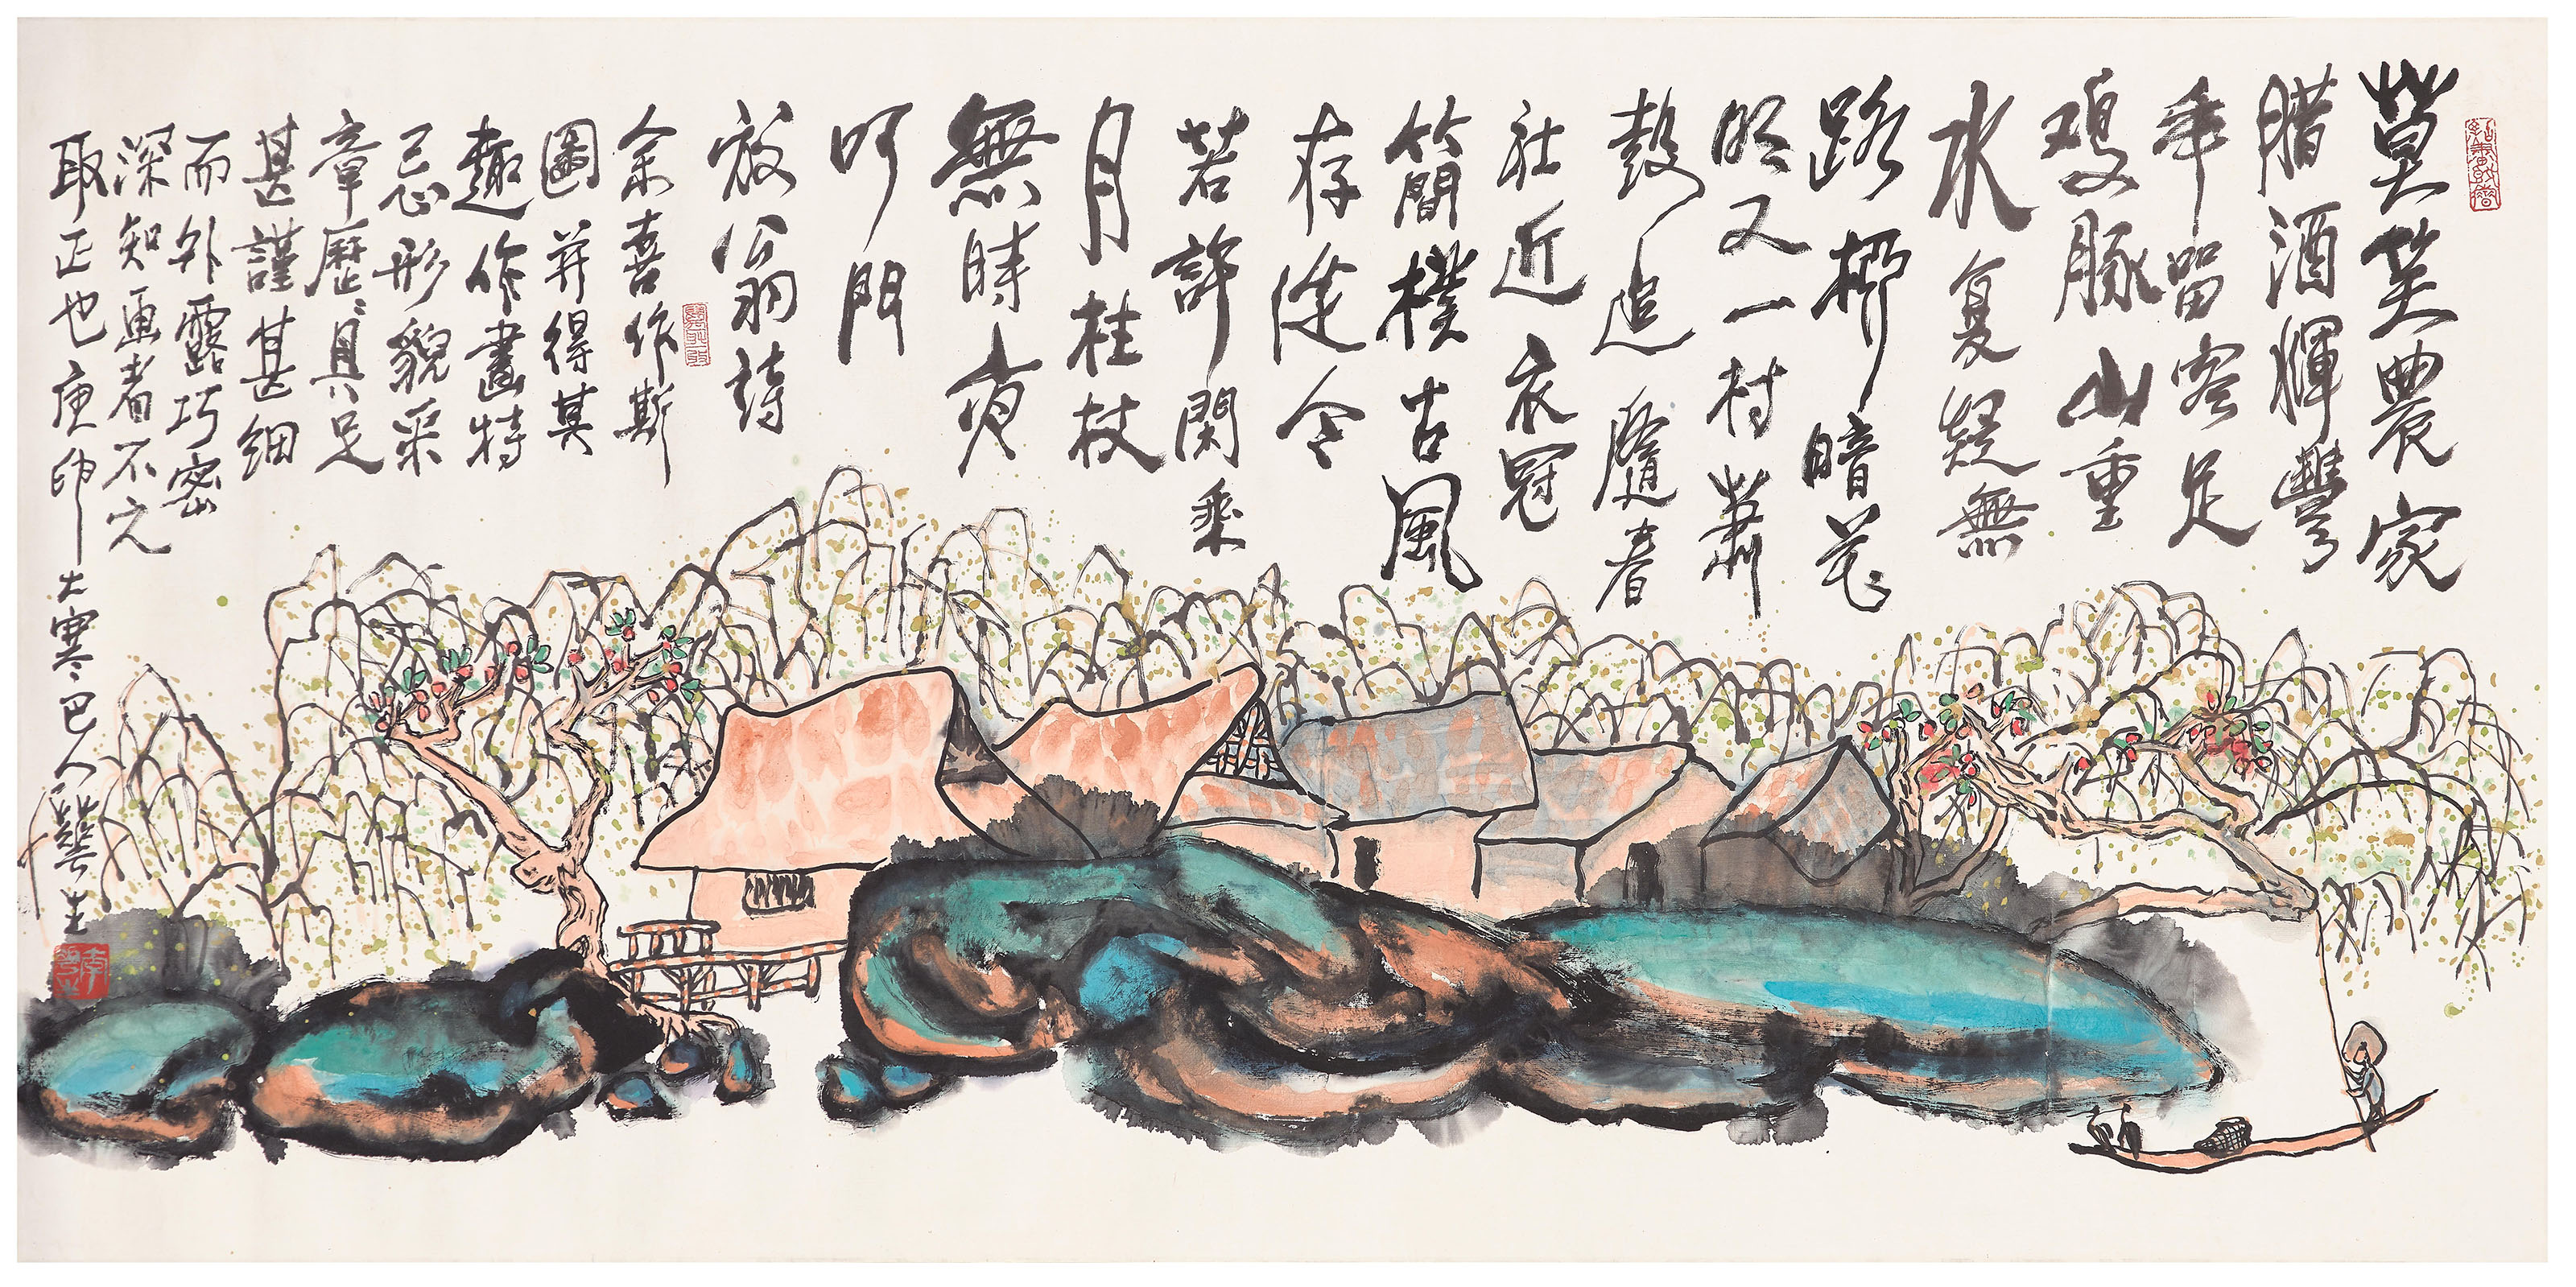 莫笑農家
腊酒渾豐
年留客足
鸡豚山重
水复疑無
路柳暗花
明又一村蕭
鼓追隨春
社近衣冠
簡樸古風
存從今
若許閑乘
月柱杖
無時夜
叩門
放翁詩
余喜作斯
圖并得其
趣作畫特
忌形貌采
章歷〻具足
甚謹甚細
而外露巧密
深知画者不之
取正也庚申大寒巴人華生